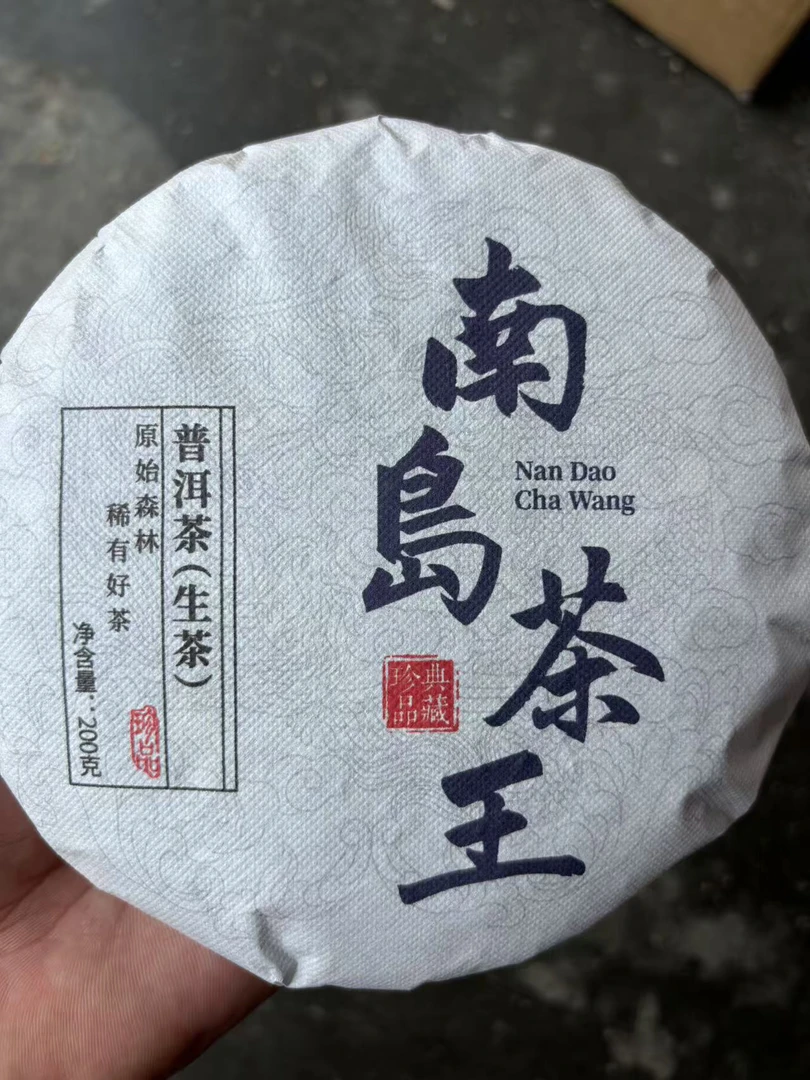 南島茶王
Nan Dao
Cha Wang
典藏
珍品
普洱茶(生茶)
原始森林
稀有好茶
珍品
净含量:200克